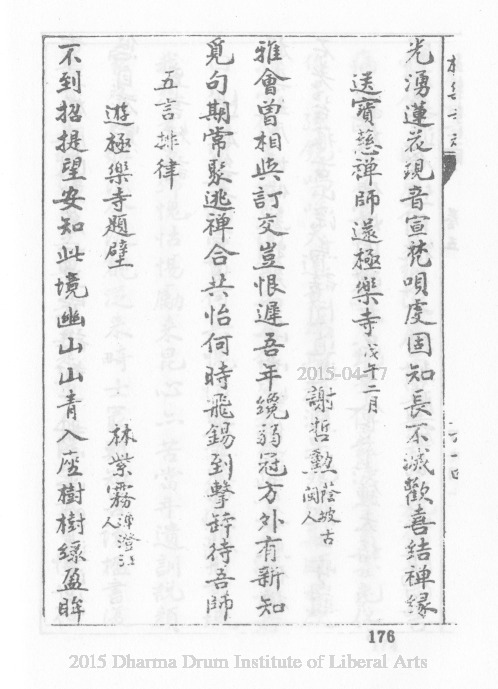 光湧蓮花鏡音宣梵唄虔固知長不滅歡喜結禪緣
送寶慈禪師還極樂寺戊午二月
謝哲勲蔭坡古閩人
雅會曾相與訂交豈恨遲吾年纔弱冠方外有新知
覓句期常聚逃禪合共怡何時飛錫到擊鉢待吾師
五言排律
遊極樂寺題壁
林紫霧澄江人
不到招提望安知此境幽山山青入座樹樹綠盈眸
176
2015-04-17
2015 Dharma Drum Institute of Liberal Arts